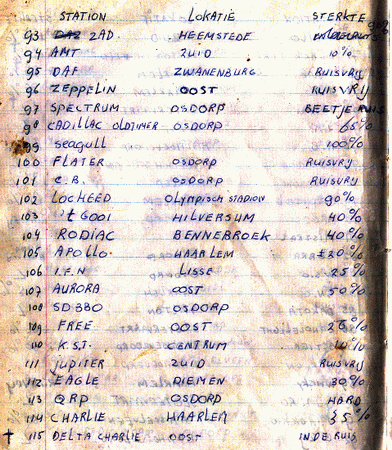 STATION LOKATIE STERKTE
93 2AD. HEEMSTEDE
94 AMT ZUID 10%
95 DAF ZWANENBURG RUISVRIJ
96 ZEPPELIN OOST RUISVRIJ
97 SPECTRUM OSDORP BEETJE RUIS
98 CADILLAC OLDTIMER OSDORP 65%
99 seagull 100%
100 FLATER OSDORP RUISVRIJ
101 C.B. OSDORP RUISVRIJ
102 LOCHEED OLYMPISCH STADION 90%
103 't GOOI HILVERSUM 40%
104 RODIAC BENNEBROEK 40%
105 APOLLO. HAARLEM ±20%
106 I.F.N LISSE 25%
107 AURORA OOST 50%
108 SD 380 OSDORP
109 FREE OOST 20%
110 K.S.T. CENTRUM 10%
111 JUPITER ZUID RUISVRIJ
112 EAGLE DIEMEN 30%
113 QRP OSDORP HARD
114 CHARLIE HAARLEM 35%
† 115 DELTA CHARLIE OOST IN DE RUIS